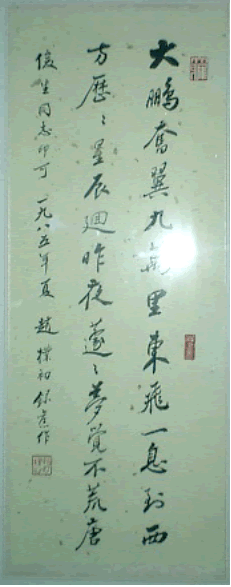 大鹏奋翼九万里东飞一息到西
方歷〻星辰迴昨夜蘧〻夢覺不荒唐
俊生同志印可 一九八五年夏 趙樸初録舊作